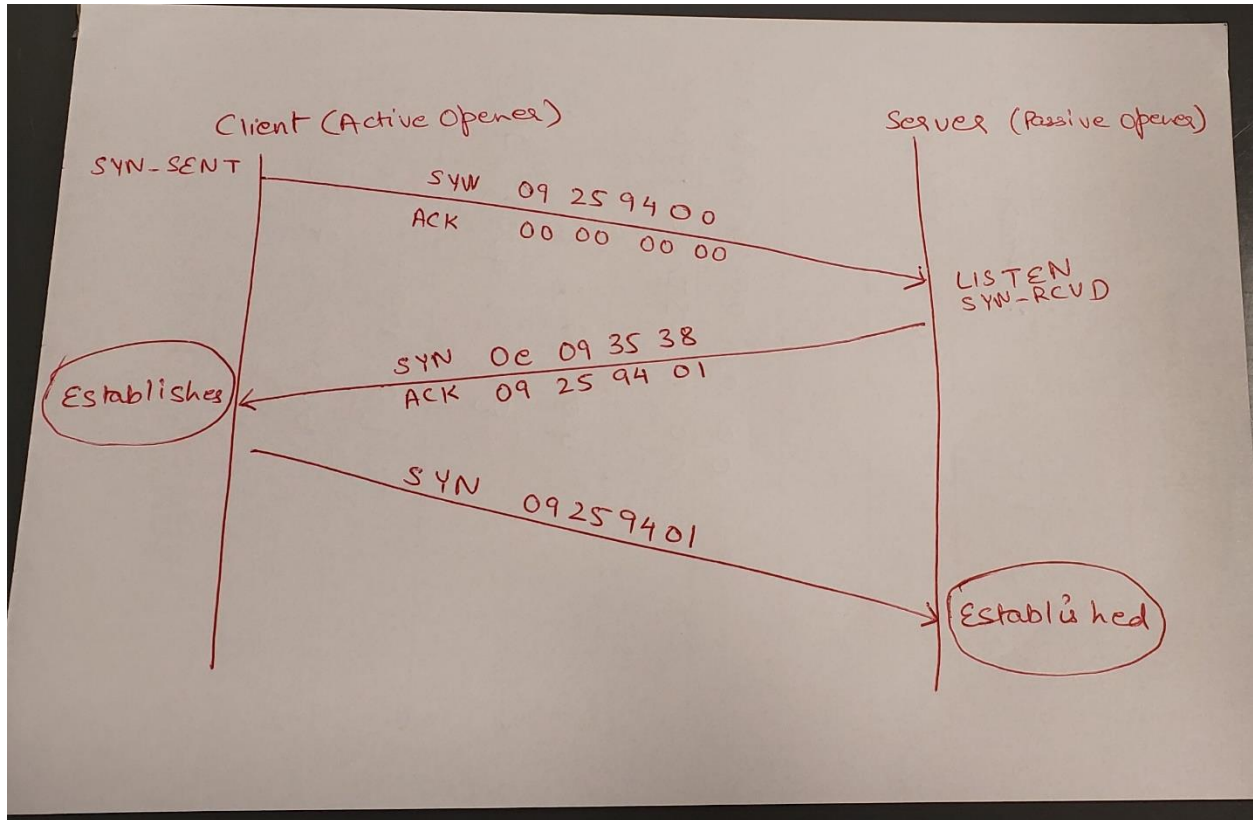 Client (Active Opener)
Server (Passive opener)
SYN-SENT
SYN 09 25 94 00
ACK 00 00 00 00
LISTEN
SYN-RCVD
SYN 0e 09 35 38
ACK 09 25 94 01
Establishes
SYN 09259401
Established